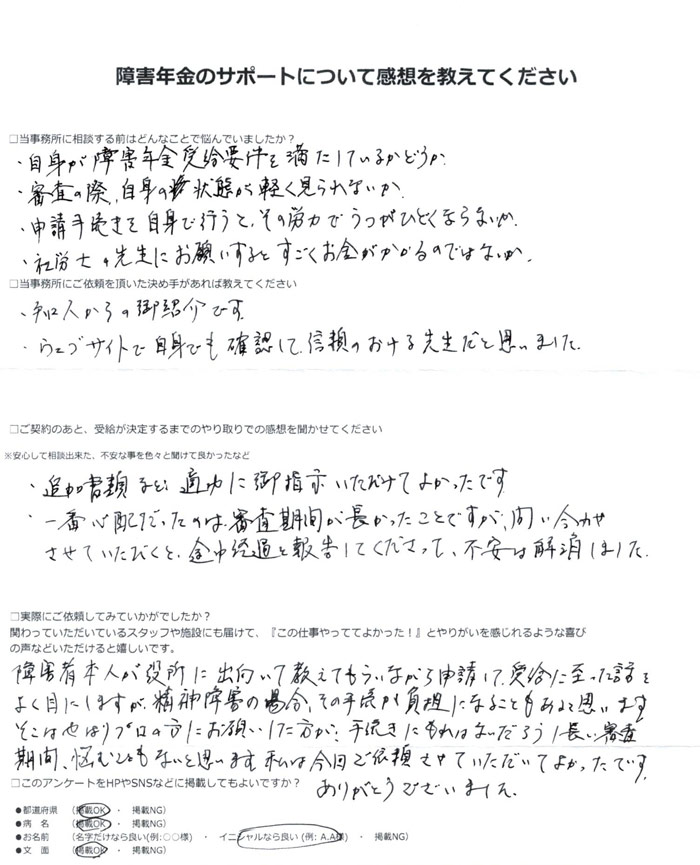 障害年金のサポートについて感想を教えてください
□当事務所に相談する前はどんなことで悩んでいましたか？
・自身が障害年金受給要件を満たしているかどうか
・審査の際、自身の状態が軽く見られないか
・申請手続きを自身で行うと、その労力でうつがひどくならないか
・社労士の先生にお願いするとすごくお金がかかるのではないか
□当事務所にご依頼を頂いた決め手があれば教えてください
・知人からの御紹介です
・ウェブサイトで自身でも確認して、信頼のおける先生だと思いました
□ご契約のあと、受給が決定するまでのやり取りでの感想を聞かせてください
※安心して相談出来た、不安な事を色々と聞けて良かったなど
・追加書類など、適切に御指示いただけてよかったです
・一番心配だったのは、審査期間が長かったことですが、問い合わせ
させていただくと、途中経過を報告してくださって、不安は解消しました.
□実際にご依頼してみていかがでしたか？
関わっていただいているスタッフや施設にも届けて、『この仕事やっててよかった！』とやりがいを感じれるような喜び
の声などいただけると嬉しいです。
障害者本人が役所に出向いて教えてもらいながら申請して、受給に至った話を
よく目にしますが、精神障害の場合、その手続が負担になることもあると思います
そこはやはりプロの方にお願いした方が、手続きにもれはないだろうし長い審査
期間、悩むこともないと思います. 私は今回ご依頼させていただいてよかったです.
ありがとうございました.
□このアンケートをHPやSNSなどに掲載してもよいですか？
●都道府県 （掲載OK ・ 掲載NG）
●病 名 （掲載OK ・ 掲載NG）
●お名前 （名字だけなら良い(例:○○様) ・ イニシャルなら良い (例: A.A様) ・ 掲載NG）
●文 面 （掲載OK ・ 掲載NG）